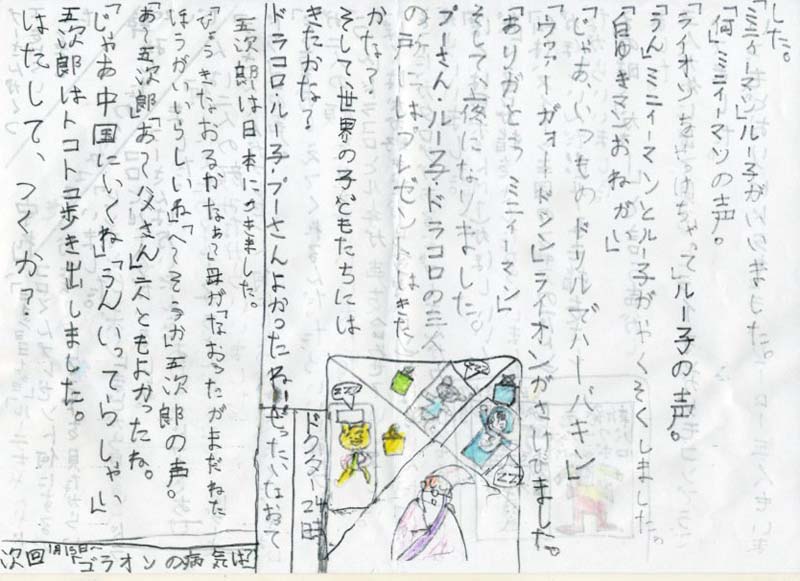 した。
「ミニィーマン」ルー子がいのました。
「何」ミニィーマンの声。
「ライオンをたすけちゃって」ルー子の声。
「うん」ミニィーマンとルー子がやくそくしました。
「白ゆきマンおねがい」
「じゃあ、いつものドリルでハーバキン」
「ウァーガォードシン」ライオンがさけびました。
「ありがとうミニィーマン」
そして、夜になりました。
プーさん・ルー子・ドラコロの三人
の戸にはプレゼントはきた
かな？
そして、世界の子どもたちには
きたかな？
ドラコロ・ルー子・プーさんよかったね！
ぜったいなおって
ドクター24時
zzz
zzz
zzz
五次郎は日本につきました。
「びょうきなおるかなぁ」母が「なおったがまだねた
ほうがいいらしいね」「へーそうか」五次郎の声。
「おー五次郎」「おー父さん」二人ともよかったね。
「じゃあ中国にいくね」「うんいってらしゃい」
五次郎はトコトコ歩き出しました。
はたして、つくか？
次回1月15日〜
ゴラオンの病気は